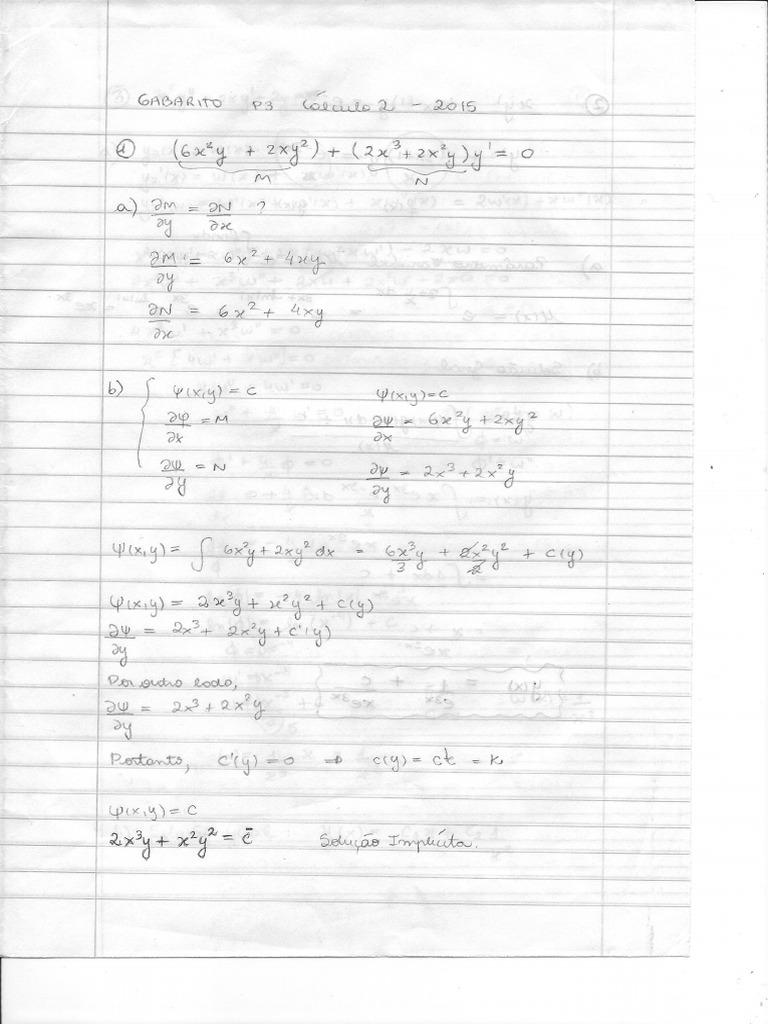 GABARITO P3 Cálculo 2 - 2015
① (6x²y + 2xy²) + (2x³+2x²y)y' = 0
M N
a) ∂M/∂y = ∂N/∂x ?
∂M/∂y = 6x² + 4xy
∂N/∂x = 6x² + 4xy
b) { ψ(x,y) = C ψ(x,y)=C
∂φ/∂x = M ∂ψ/∂x = 6x²y + 2xy²
∂ψ/∂y = N ∂ψ/∂y = 2x³+2x²y
ψ(x,y) = ∫ 6x²y + 2xy² dx = 6x³y/3 + 2x²y²/2 + C(y)
ψ(x,y) = 2x³y + x²y² + C(y)
∂ψ/∂y = 2x³ + 2x²y + C'(y)
Por outro lado,
∂ψ/∂y = 2x³ + 2x²y
Portanto, C'(y) = 0 ⇒ C(y) = ct = K
ψ(x,y) = C
2x³y + x²y² = c̄ Solução Implícita.